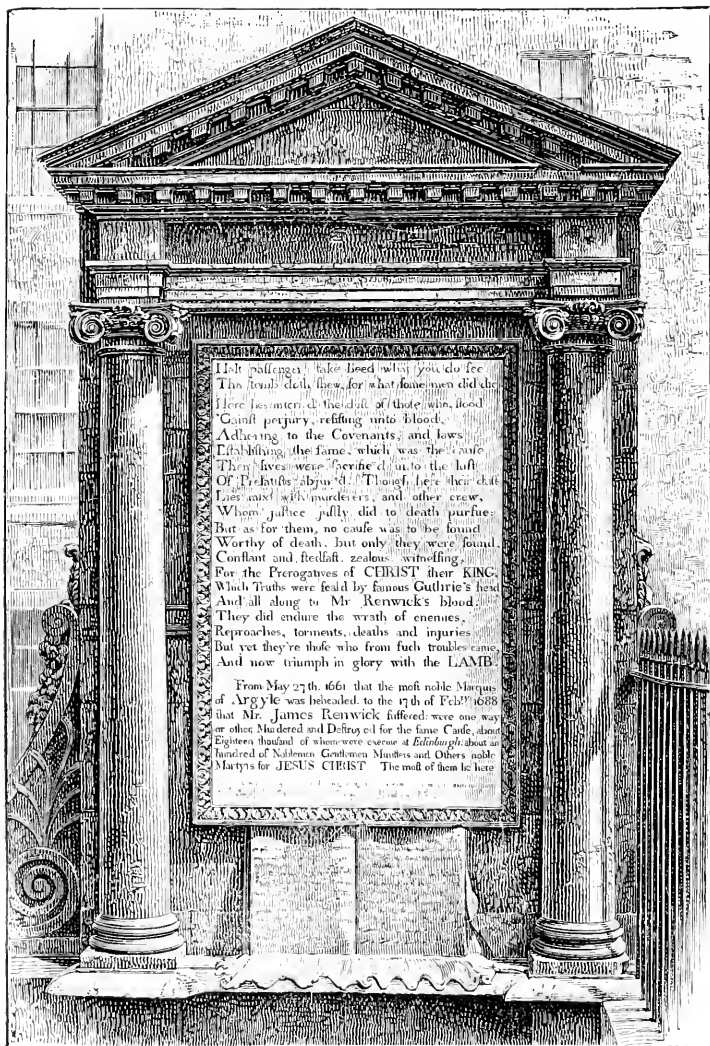 Halt passenger, take heed what you do see
Ths tomb doth shew, for what some men did die
Here lies interr'd the dust of those who, stood
'Gainst perjury, resisting unto blood,
Adhering to the Covenants, and laws
Establishing the same, which was the cause
Their lives were sacrific'd unto the lust
Of Prelatists abjur'd. Though here their dust
Lies mixt with murderers, and other crew,
Whom justice justly did to death pursue:
But as for them, no cause was to be found
Worthy of death, but only they were found,
Constant and stedfast, zealous witnessing,
For the Prerogatives of CHRIST their KING.
Which Truths were seal'd by famous Guthrie's head
And all along to Mr Renwick's blood.
They did endure the wrath of enemies,
Reproaches, torments, deaths and injuries
But yet they're those who from such troubles came,
And now triumph in glory with the LAMB.
From May 27th. 1661 that the most noble Marquis
of Argyle was beheaded. to the 17th of Febry 1688
that Mr. James Renwick suffered: were one way
or other, Murdered and Destroyed for the same Cause, about
Eighteen thousand of whom were execute at Edinburgh about an
hundred of Noblemen Gentlemen Ministers and Others noble
Martyrs for JESUS CHRIST The most of them lie here